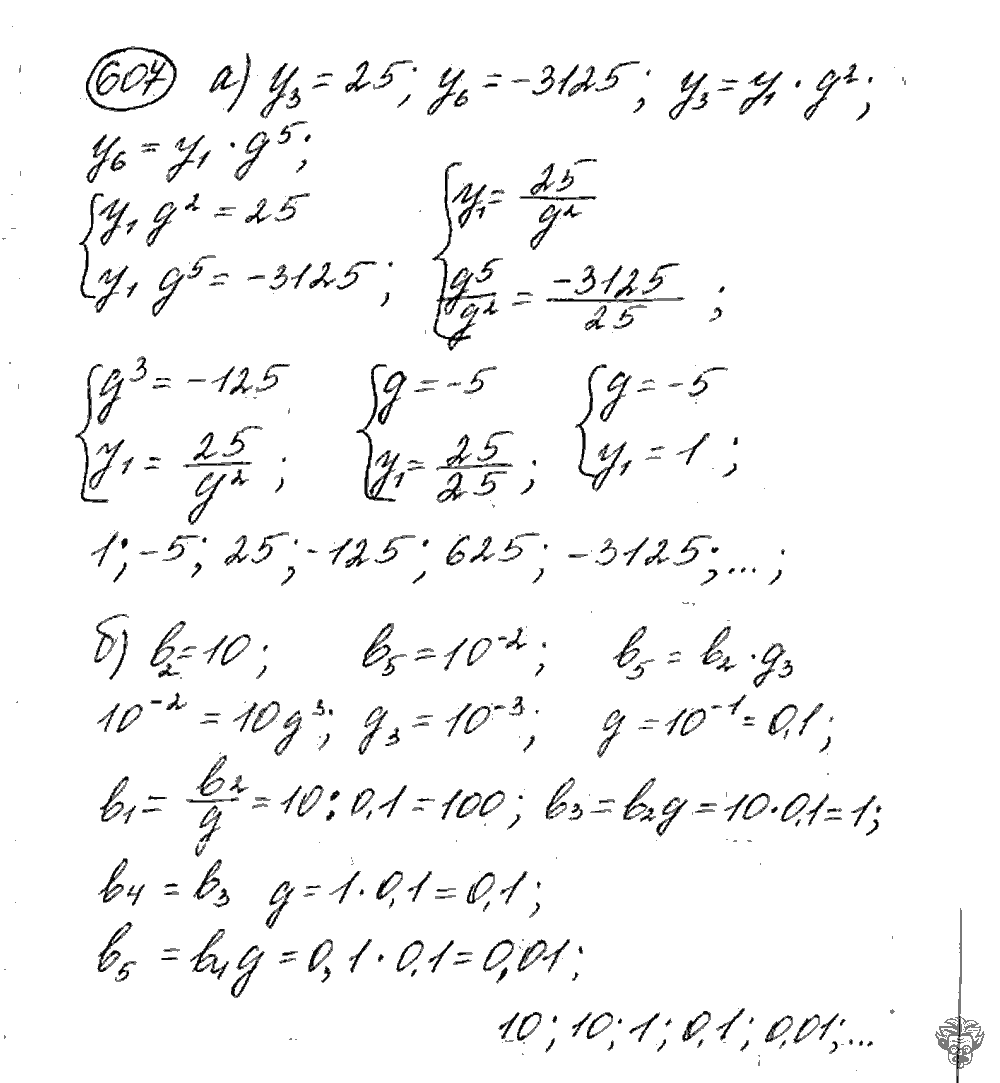 607 а) y₃ = 25; y₆ = -3125; y₃ = y₁ · g²;
y₆ = y₁ · g⁵;
{ y₁ g² = 25
y₁ g⁵ = -3125;
{ y₁ = 25/g²
g⁵/g² = -3125/25;
{ g³ = -125
y₁ = 25/g²;
{ g = -5
y₁ = 25/25;
{ g = -5
y₁ = 1;
1; -5; 25; -125; 625; -3125; ...;
б) b₂ = 10; b₅ = 10⁻²; b₅ = b₂ · g₃
10⁻² = 10g³; g₃ = 10⁻³; g = 10⁻¹ = 0,1;
b₁ = b₂/g = 10 : 0,1 = 100; b₃ = b₂g = 10 · 0,1 = 1;
b₄ = b₃ g = 1 · 0,1 = 0,1;
b₅ = b₄g = 0,1 · 0,1 = 0,01;
10; 10; 1; 0,1; 0,01; ...